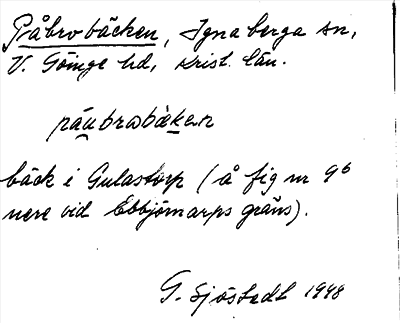 Påbrobäcken, Ignaberga sn,
V. Göinge hd, Krist. län.
påu̯brobäkən
bäck i Gulastorp (å fig nr 96
nere vid Ebbjörnarps gräns).
G. Sjöstedt 1948